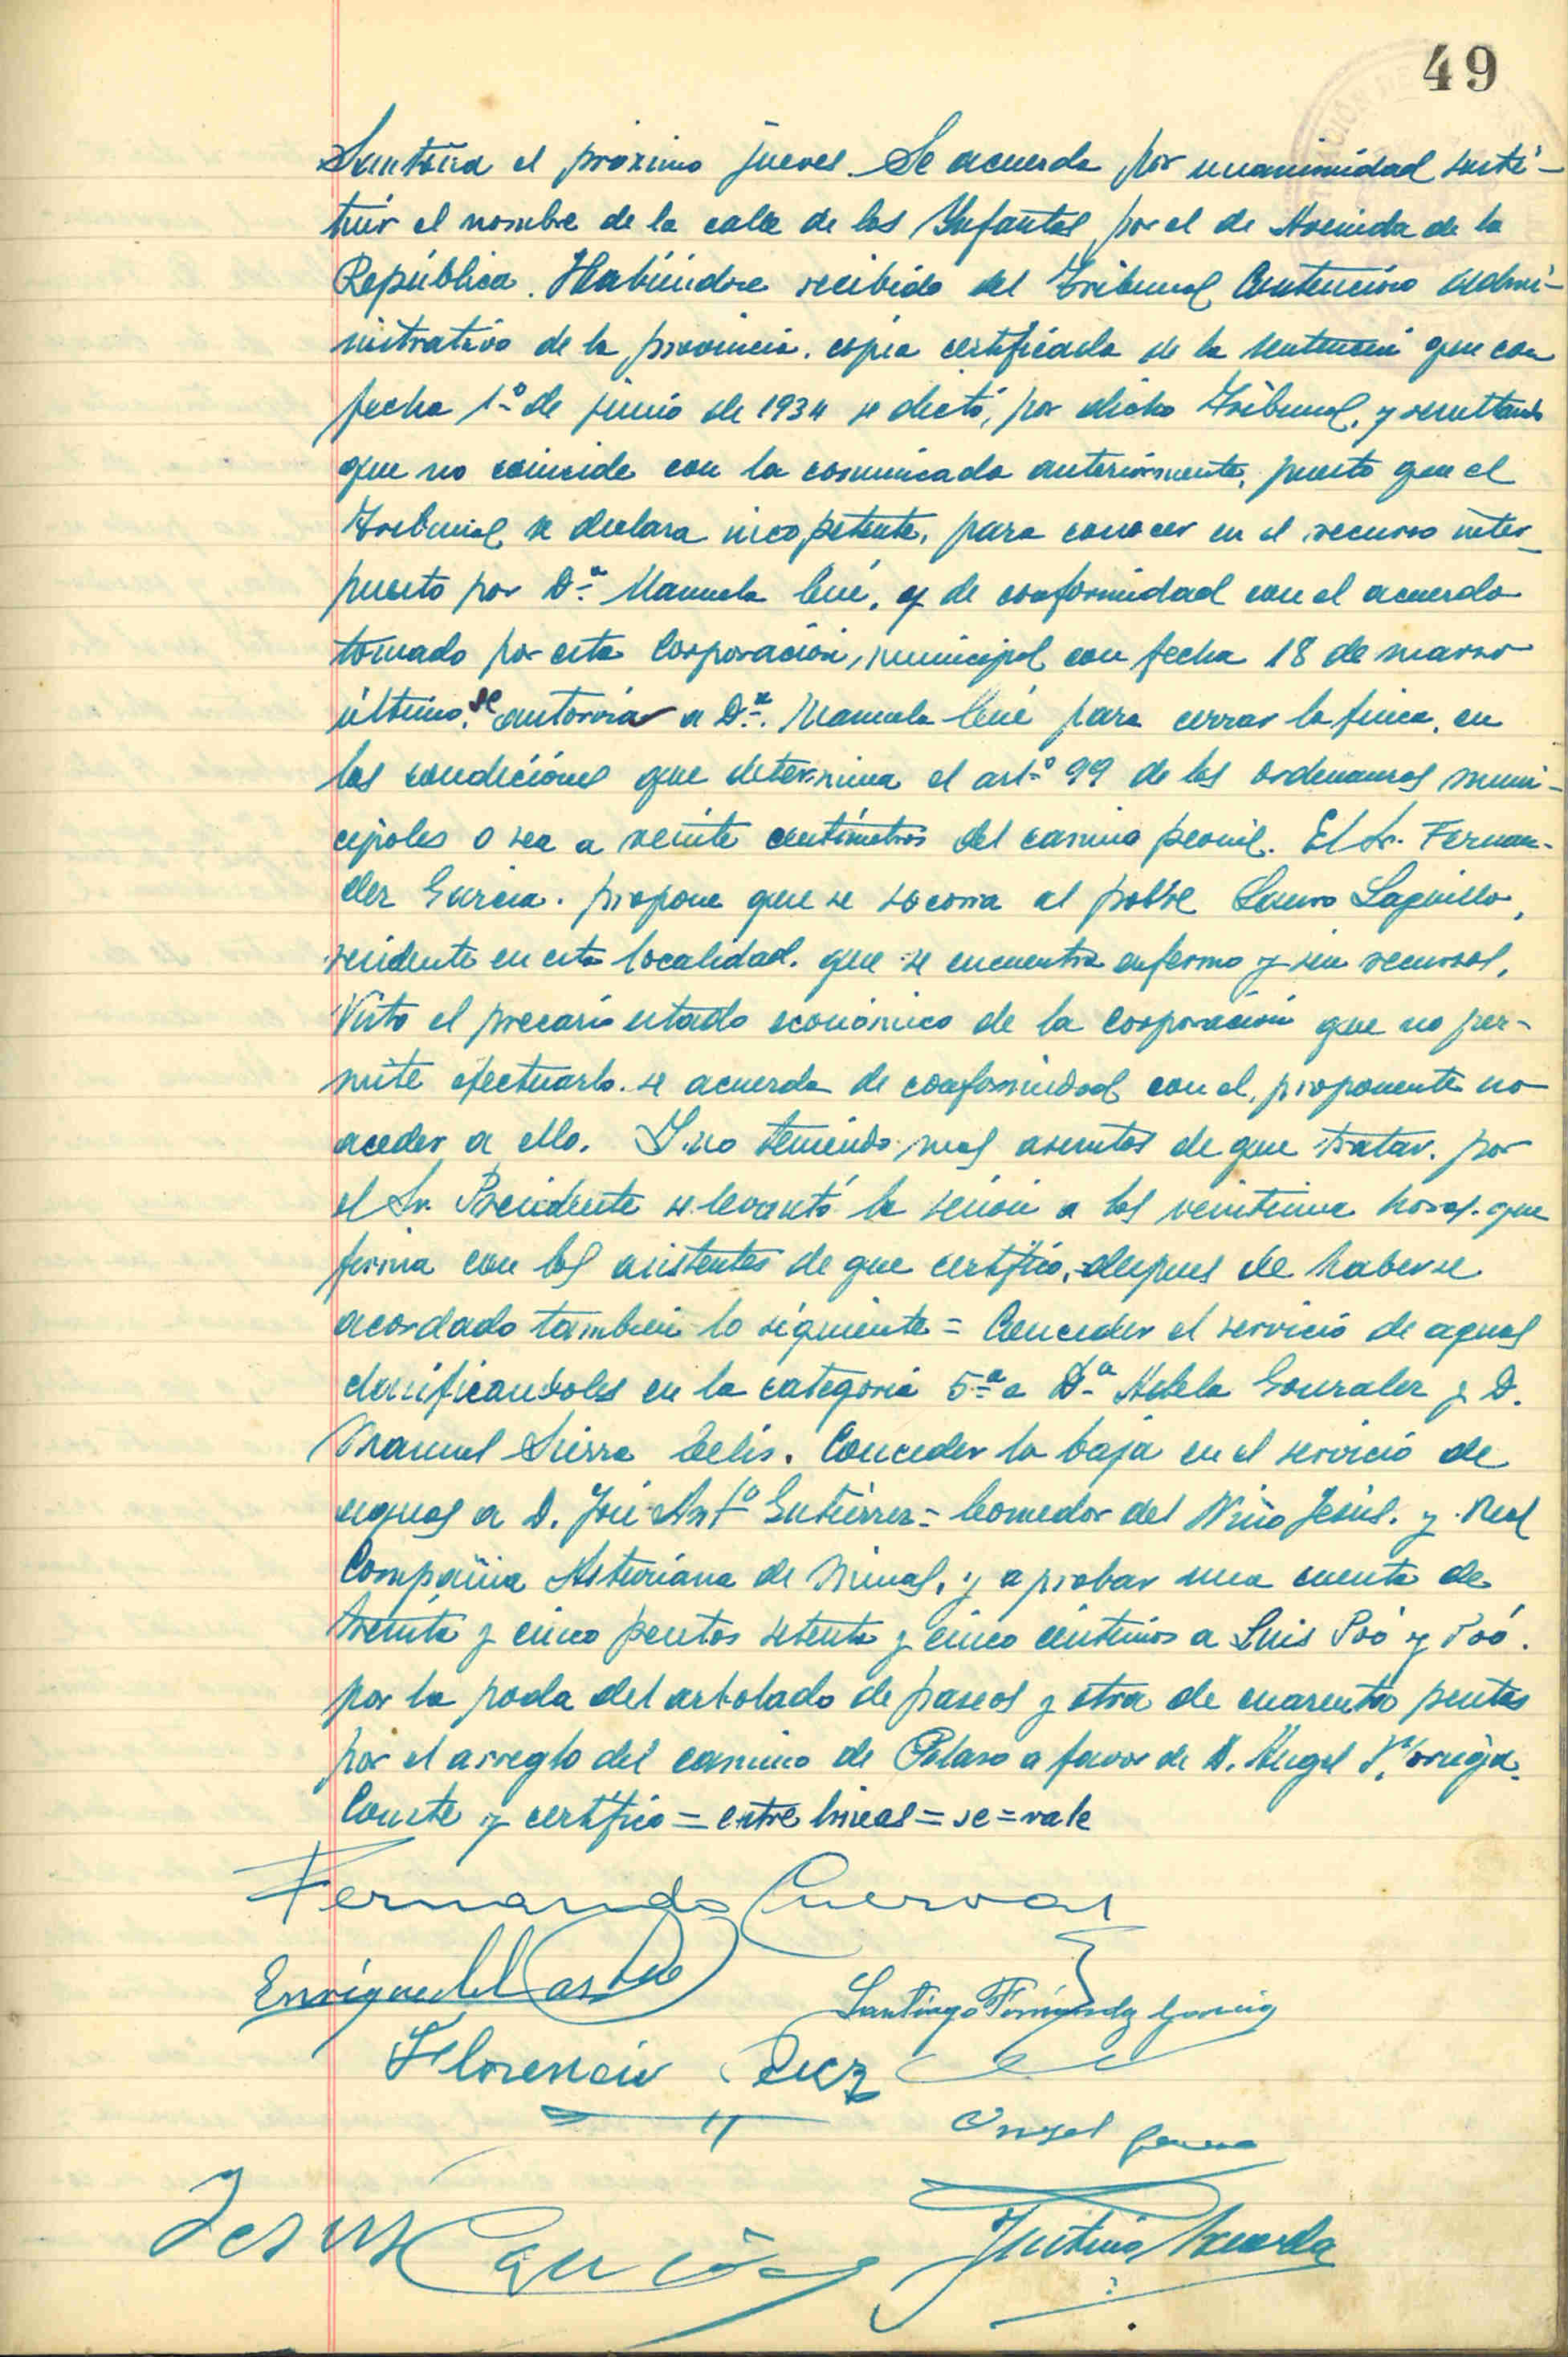 49
Santoña el próximo jueves. Se acuerda por unanimidad susti-
tuir el nombre de la calle de los Infantes, por el de Avenida de la
República. Habiéndose recibido del Tribunal Contencioso Admi-
nistrativo de la provincia. copia certificada de la sentencia que con
fecha 1º de junio de 1934 se dictó, por dicho Tribunal, y resultando
que no coincide con la comunicada anteriormente, puesto que el
Tribunal se declara incopetente, para conocer en el recurso inter-
puesto por Dª Manuela Cué, y de conformidad con el acuerdo
tomado por esta Corporación, municipal con fecha 18 de marzo
último, se autoriza a Dª. Manuela Cué para cerrar la finca, en
las condiciónes que determina el artº 99 de las ordenanzas muni-
cipales o sea a veinte centímetros del camino peonil. El Sr. Fernan-
dez Garcia. propone que se socorra al pobre Lauro Laguillo,
residente en esta localidad. que se encuentra enfermo y sin recursos,
Visto el precario estado económico de la Corporación que no per-
mite efectuarlo. se acuerda de conformidad con el, proponente no
aceder a ello. Y no teniendo mas asuntos de que tratar. por
el Sr. Presidente se levantó la sesión a las veintiuna horas. que
firma con los asistentes de que certifico, despues de haberse
acordado tambien lo siguiente = Conceder el servicio de aguas
clasificandoles en la categoria 5ª a Dª Adela Gonzalez y D.
Manuel Sierra Celis. Conceder la baja en el servicio de
aguas a D. José Antº Gutiérrez = Comedor del Niño Jesús. y Real
Compañia Asturiana de Minas, y aprobar una cuenta de
treinta y cinco pesetas setenta y cinco céntimos a Luis Poó y Poó.
por la poda del arbolado de paseos y otra de cuarenta pesetas
por el arreglo del camino de a favor de D. Angel
Conste y certifico = entre lineas = se = vale
Fernando Cuevas
Enrique del Castillo
Santiago Fernandez Garcia
Florencio Diez
Angel
Jesus Cancio
Justino